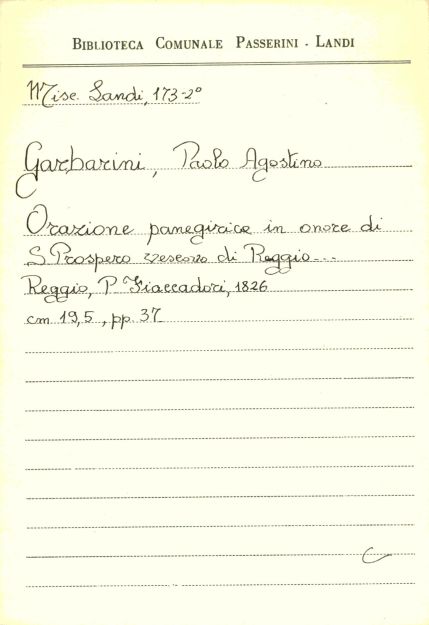 BIBLIOTECA COMUNALE PASSERINI - LANDI
Misc. Landi, 173-2°
Garbarini, Paolo Agostino
Orazione panegirica in onore di
S. Prospero vescovo di Reggio...
Reggio, P. Fiaccadori, 1826
cm 19,5, pp. 37
C